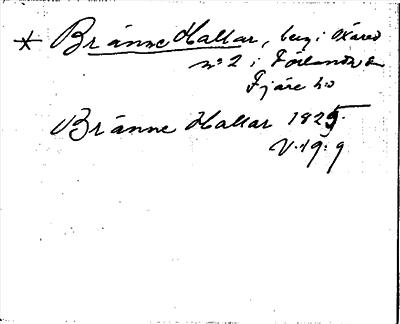 * Bränne Hallar, berg i Skåred
no 2 i Förlanda sn
Fjäre hd
Bränne Hallar 1825.
V. 19. 9